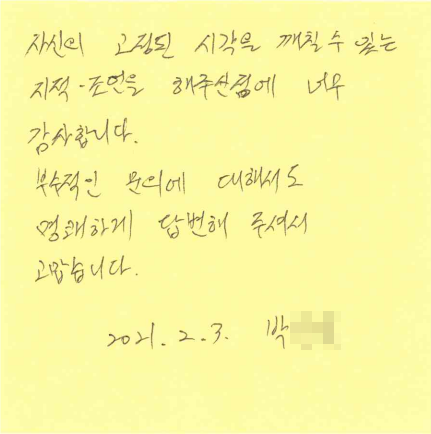 자신의 고정된 시각을 깨칠 수 있는
지적·조언을 해주신점에 너무
감사합니다.
부수적인 문의에 대해서도
명쾌하게 답변해 주셔서
고맙습니다.
2021. 2. 3. 박